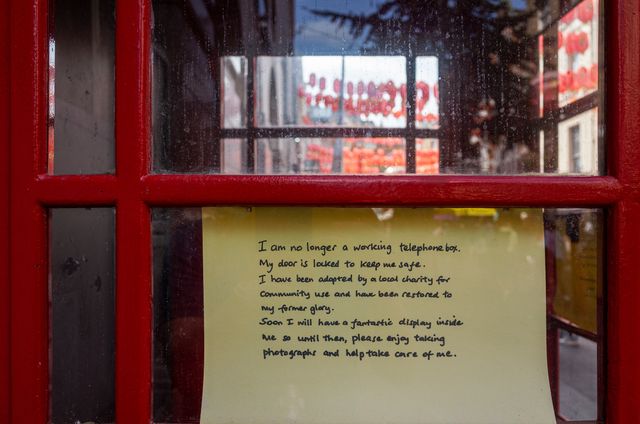 I am no longer a working telephone box.
My door is locked to keep me safe.
I have been adopted by a local charity for
community use and have been restored to
my former glory.
Soon I will have a fantastic display inside
me so until then, please enjoy taking
photographs and help take care of me.